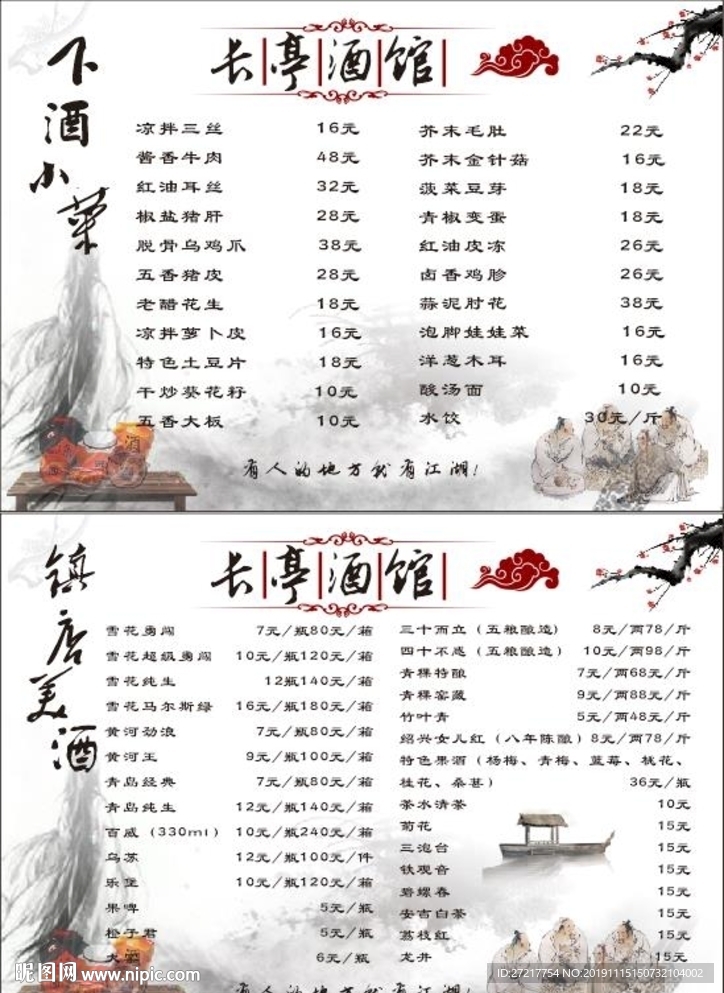 长亭酒馆
下酒小菜
凉拌三丝 16元
酱香牛肉 48元
红油耳丝 32元
椒盐猪肝 28元
脱骨乌鸡爪 38元
五香猪皮 28元
老醋花生 18元
凉拌萝卜皮 16元
特色土豆片 18元
干炒葵花籽 10元
五香大板 10元
芥末毛肚 22元
芥末金针菇 16元
菠菜豆芽 18元
青椒变蛋 18元
红油皮冻 26元
卤香鸡胗 26元
蒜泥肘花 38元
泡脚娃娃菜 16元
洋葱木耳 16元
酸汤面 10元
水饺 30元/斤
酒
有人的地方就有江湖!
长亭酒馆
镇店美酒
雪花勇闯 7元/瓶80元/箱
雪花超级勇闯 10元/瓶120元/箱
雪花纯生 12瓶140元/箱
雪花马尔斯绿 16元/瓶180元/箱
黄河劲浪 7元/瓶80元/箱
黄河王 9元/瓶100元/箱
青岛经典 7元/瓶80元/箱
青岛纯生 12元/瓶140元/箱
百威(330ml) 10元/瓶240元/箱
乌苏 12元/瓶100元/件
乐堡 10元/瓶120元/箱
果啤 5元/瓶
松子君 5元/瓶
大 6元/瓶
三十而立(五粮酿造) 8元/两78/斤
四十不惑(五粮酿造) 10元/两98/斤
青稞特酿 7元/两68元/斤
青稞窖藏 9元/两88元/斤
竹叶青 5元/两48元/斤
绍兴女儿红(八年陈酿) 8元/两78/斤
特色果酒(杨梅、青梅、蓝莓、桃花、
桂花、桑葚) 36元/瓶
茶水清茶 10元
菊花 15元
三泡台 15元
铁观音 15元
碧螺春 15元
安吉白茶 15元
荔枝红 15元
龙井 15元
昵图网 www.nipic.com
ID:27217754 NO:20191115150732104002